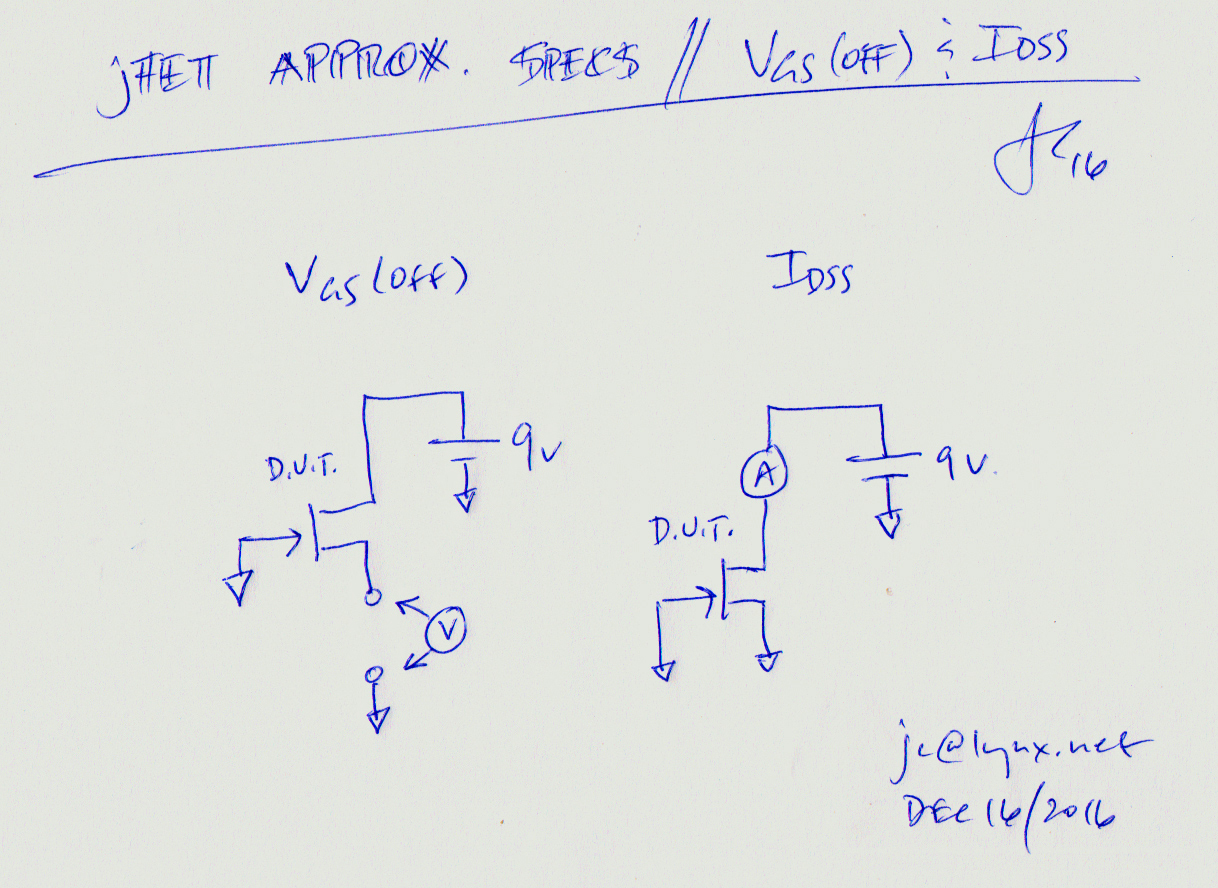 jFET APPROX. SPECS // VGS (OFF) & IDSS
JC16
VGS (OFF)
IDSS
9V
D.U.T.
V
A
9V.
D.U.T.
jc@lynx.net
DEC 16/2016